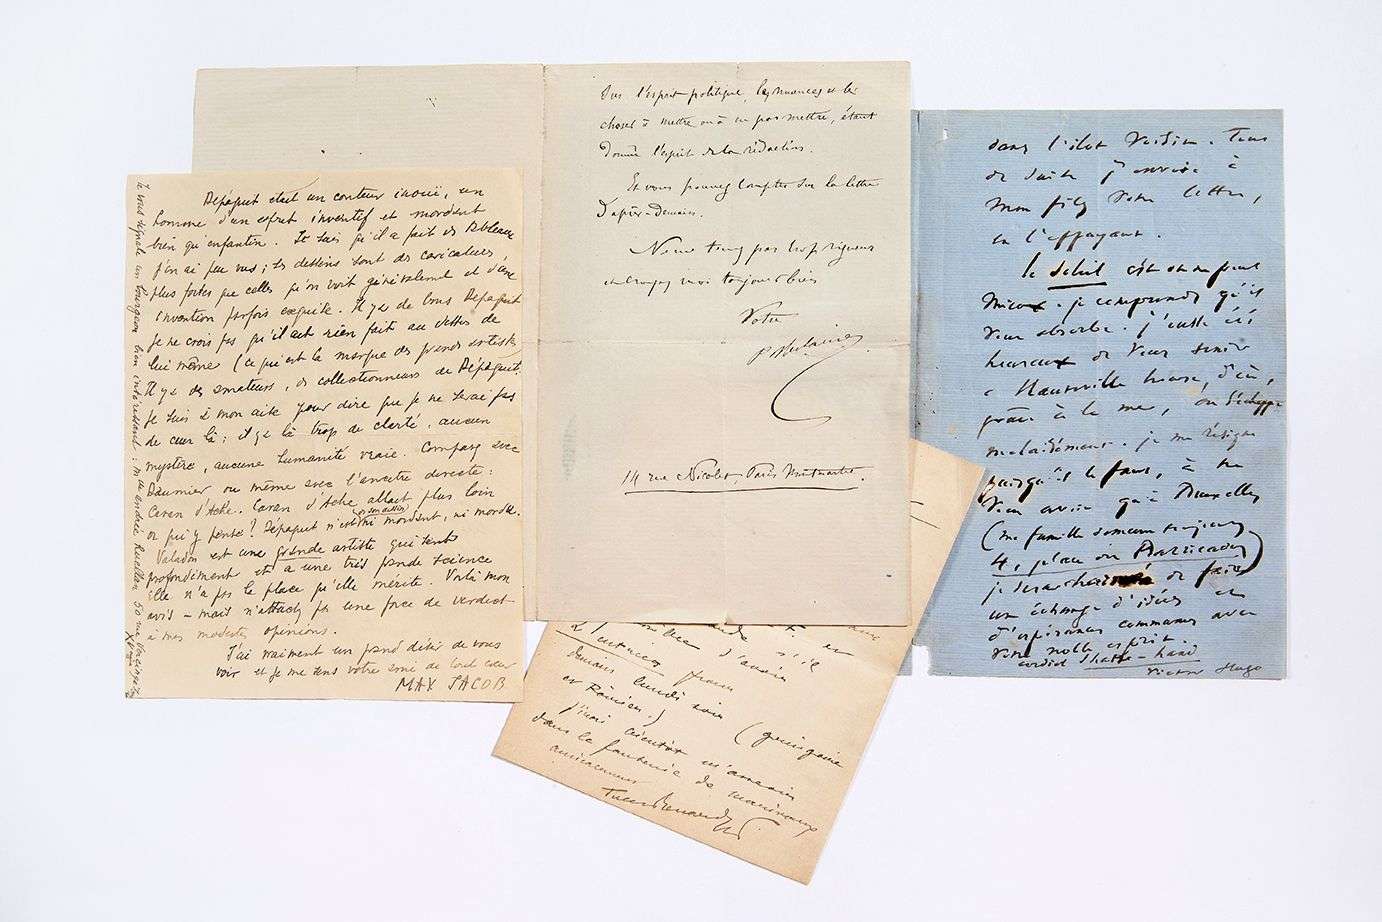 Dépaquit était un conteur inouï, un
homme d'un esprit inventif et mordant
bien qu'enfantin. Je sais qu'il a fait des tableaux
j'en ai peu vus ; les dessins sont des caricatures,
plus fortes que celles qu'on voit généralement et d'une
invention parfois exquise. Il y a de bons Dépaquit
je ne crois pas qu'il ait rien fait au dessus de
lui même (ce qui est la marque des grands artistes
Il y a des amateurs, des collectionneurs de Dépaquit,
je suis à mon aise pour dire que je ne serai pas
de ceux là ; il y a là trop de clarté, aucun
mystère, aucune humanité vraie. Comparez avec
Daumier ou même avec l'ancêtre directe :
Caran d'Ache. Caran d'Ache allait plus loin
or qui y pense? Dépaquit n'est ni mordant, ni mordu.
Valadon est une grande artiste qui sent
profondément et a une très grande science
Elle n'a pas la place qu'elle mérite. Voilà mon
avis – mais n'attachez pas une force de verdict
à mes modestes opinions.
J'ai vraiment un grand désir de vous
voir et je me tends votre ami de tout cœur
MAX JACOB
Je vous signale un bourgeon bien intéressant : Mlle Andrée Ruellan
XVe
l'esprit politique, les nuances et les
choses à mettre ou à ne pas mettre, étant
donné l'esprit de la rédaction.
Et vous pouvez compter sur la lettre
d'après-demain.
Ne me tenez pas trop rigueur
et croyez moi toujours bien
Votre
P. Verlaine
14 rue Nicolet, Paris Montmartre.
2 entrées pour
demain lundi soir (quinzaine
et Racine.)
J'irai bientôt m'asseoir
dans le fauteuil de
Jules Renard
dans l'îlot voisin. Tout
de suite j'envoie à
mon fils votre lettre,
en l'essayant.
le Soleil c'est on ne peut
mieux. je comprends qu'il
vous absorbe. j'eusse été
heureux de vous serrer
à Hauteville house, d'où,
grâce à la mer, on s'échappe
malaisément. je me résigne
puisqu'il le faut, à ne
vous avoir qu'à Bruxelles
(ma famille demeure toujours
4, place des Barricades)
je serai charmé de faire
un échange d'idées et
d'espérances communes avec
votre noble esprit.
cordial shake-hand
Victor Hugo